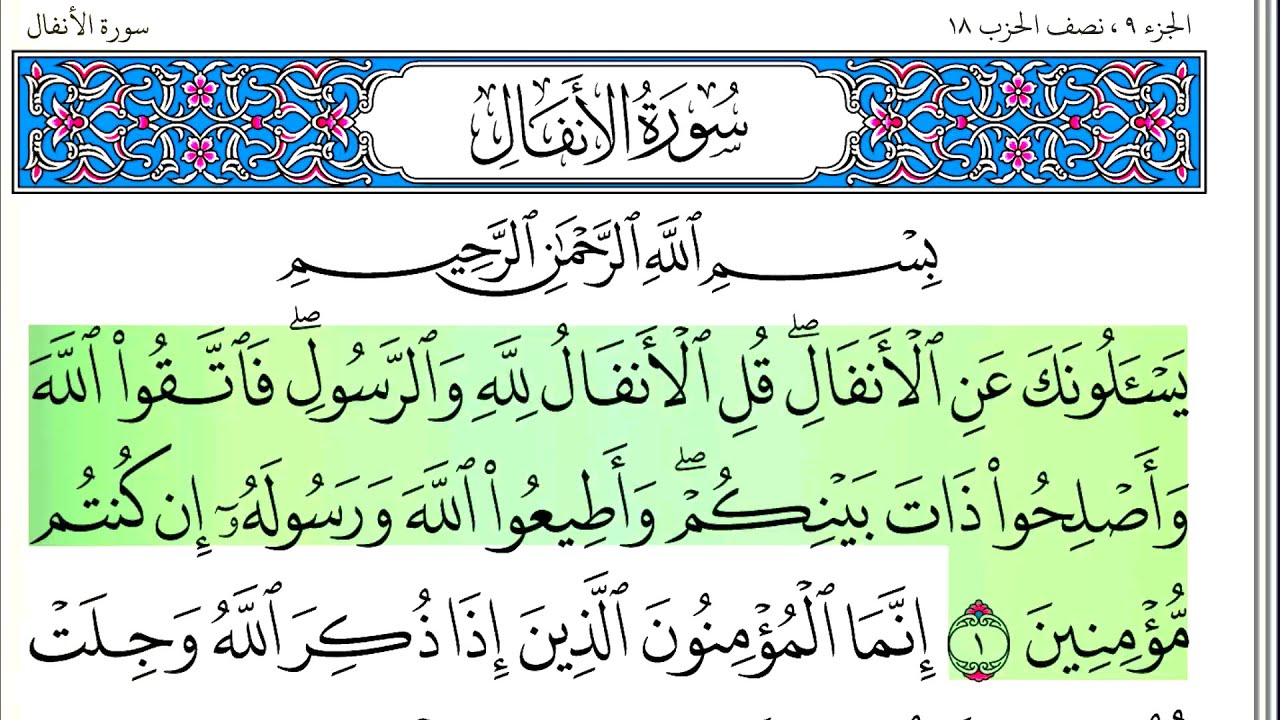 الجزء ٩ ، نصف الحزب ١٨
سورة الأنفال
سُورَةُ الأَنفَالِ
بِسْمِ ٱللَّهِ ٱلرَّحْمَٰنِ ٱلرَّحِيمِ
يَسْـَٔلُونَكَ عَنِ ٱلْأَنفَالِ ۖ قُلِ ٱلْأَنفَالُ لِلَّهِ وَٱلرَّسُولِ ۖ فَٱتَّقُوا۟ ٱللَّهَ
وَأَصْلِحُوا۟ ذَاتَ بَيْنِكُمْ ۖ وَأَطِيعُوا۟ ٱللَّهَ وَرَسُولَهُۥٓ إِن كُنتُم
مُّؤْمِنِينَ ١ إِنَّمَا ٱلْمُؤْمِنُونَ ٱلَّذِينَ إِذَا ذُكِرَ ٱللَّهُ وَجِلَتْ